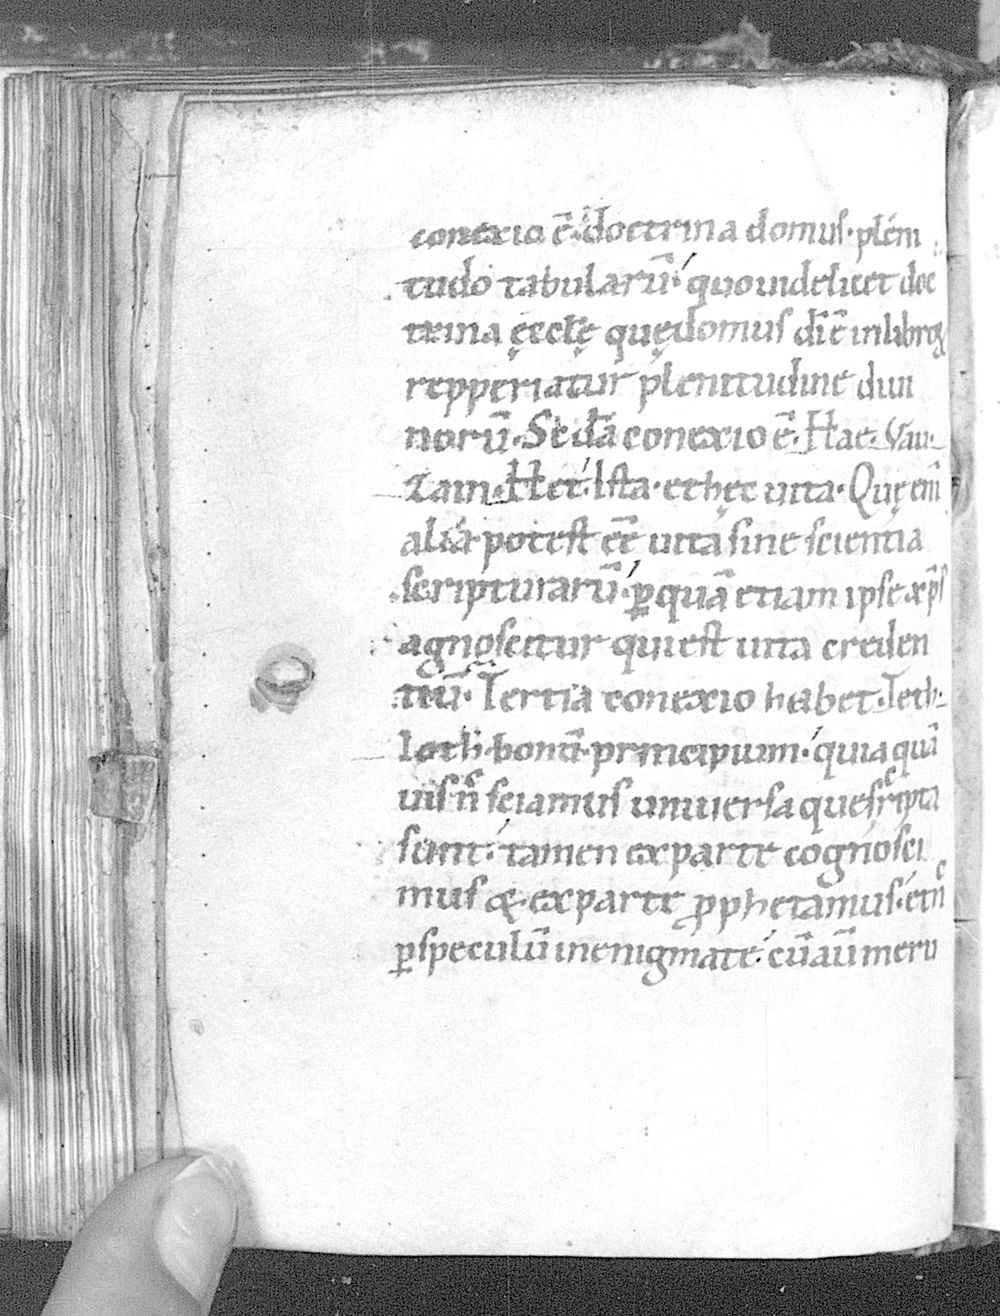 conexio ē· doctrina domus· pleni
tudo tabularū· quo uidelicet doc
trina ęcclę quędomus dī ē inlibroꝝ
repperiatur plenitudine diui
norū· Secda conexio ē· Hae· Uau·
Zain· Het· Ista· et hęc uita· Quę enī
alia potest eē uita sine scientia
scripturarū· ꝑquā etiam ipse xp̄s
agnoscitur qui est uita creden
tiū· Tertia conexio habet· Teth·
Ioth· bonū· principium· quia quā
uis n̄c sciamus uniuersa que scripta
sunt· tamen ex parte cognosci
mus &· ex parte ꝓphetamus· et nc̄
ꝑ speculū in enigmate· cū aū meru